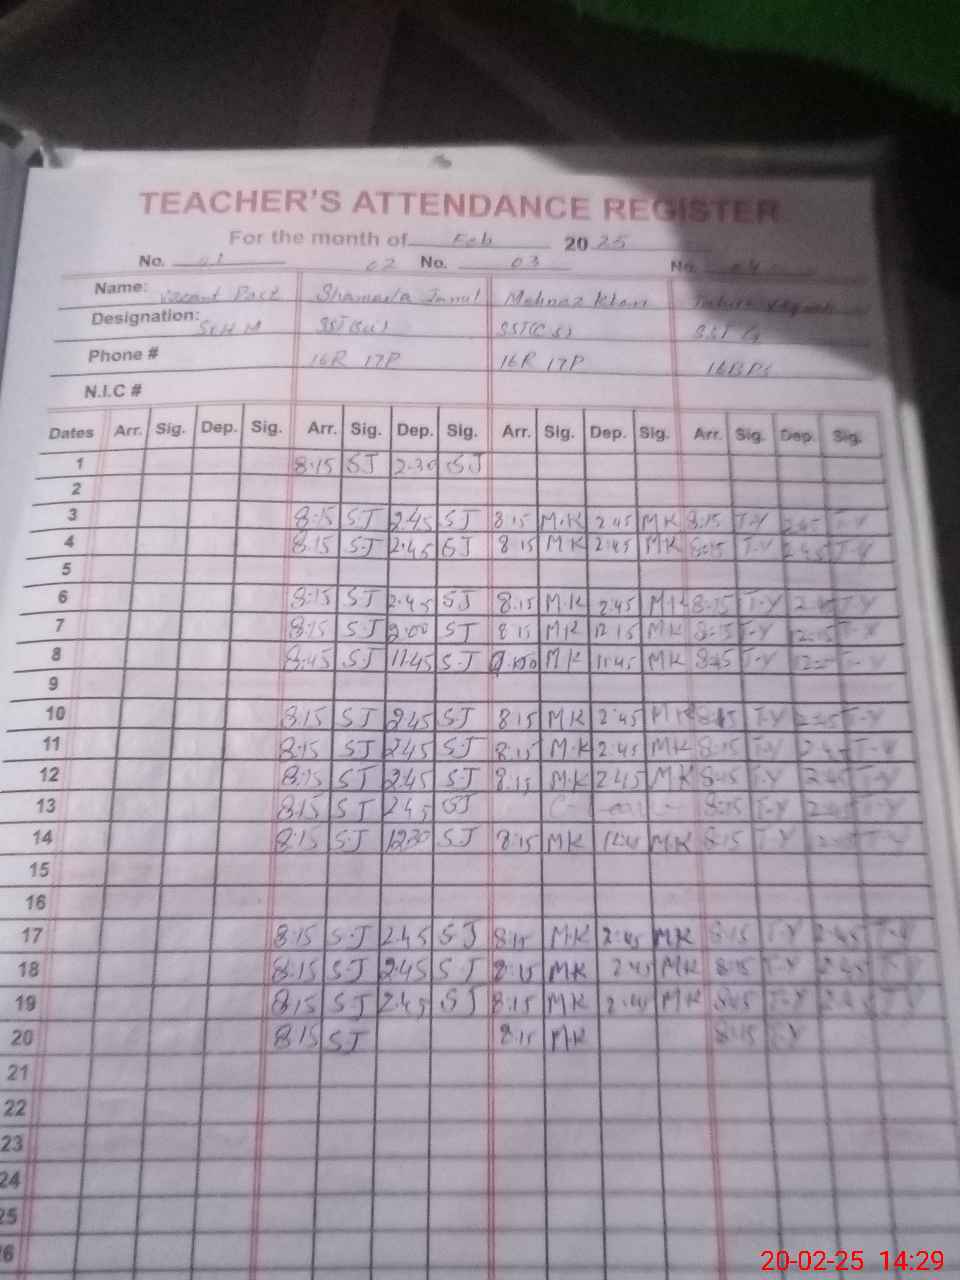 TEACHER'S ATTENDANCE REGISTER
For the month of Feb 2025
No. 01 02 No. 03 No. 04
Name: Vacant Post Shamaila Jamul Mehnaz Khan
Designation: SST(Sci) SST(C.S)
Phone # 16R 17P 16R 17P 16BPS
N.I.C #
Dates Arr. Sig. Dep. Sig. Arr. Sig. Dep. Sig. Arr. Sig. Dep. Sig. Arr. Sig. Dep. Sig.
1 8:15 SJ 2:30 SJ
2
3 8:15 S.J 2:45 SJ 8:15 M.K 2:45 MK 8:15 T-Y 2:45 T-Y
4 8:15 S.J 2:45 SJ 8:15 MK 2:45 MK 8:15 T-Y 2:45 T-Y
5
6 8:15 SJ 2:45 SJ 8:15 M.K 2:45 MK 8:15 T-Y 2:45 T-Y
7 8:15 S.J SJ 8:15 MK 12:15 MK 8:15 T-Y 12:15 T-Y
8 8:45 SJ 11:45 S.J MK 11:45 MK 8:45 T-Y T-Y
9
10 8:15 SJ 2:45 S.J 8:15 MK 2:45 MK 8:15 T-Y 2:45 T-Y
11 8:15 SJ 2:45 SJ 8:15 M.K 2:45 MK 8:15 T-Y 2:45 T-Y
12 8:15 SJ 2:45 S.J 8:15 M.K 2:45 MK 8:15 T-Y 2:45 T-Y
13 8:15 SJ 2:45 SJ 8:15 T-Y 2:45 T-Y
14 8:15 S.J 12:30 SJ 8:15 MK MK 8:15 T-Y T-Y
15
16
17 8:15 S.J 2:45 SJ 8:15 M.K 2:45 MK 8:15 T-Y 2:45 T-Y
18 8:15 S.J 2:45 S.J 8:15 MK 2:45 MK 8:15 T-Y 2:45 T-Y
19 8:15 SJ 2:45 SJ 8:15 MK 2:45 MK 8:45 T-Y 2:45 T-Y
20 8:15 SJ 8:15 M.K 8:15 T-Y
21
22
23
24
25
6
20-02-25 14:29